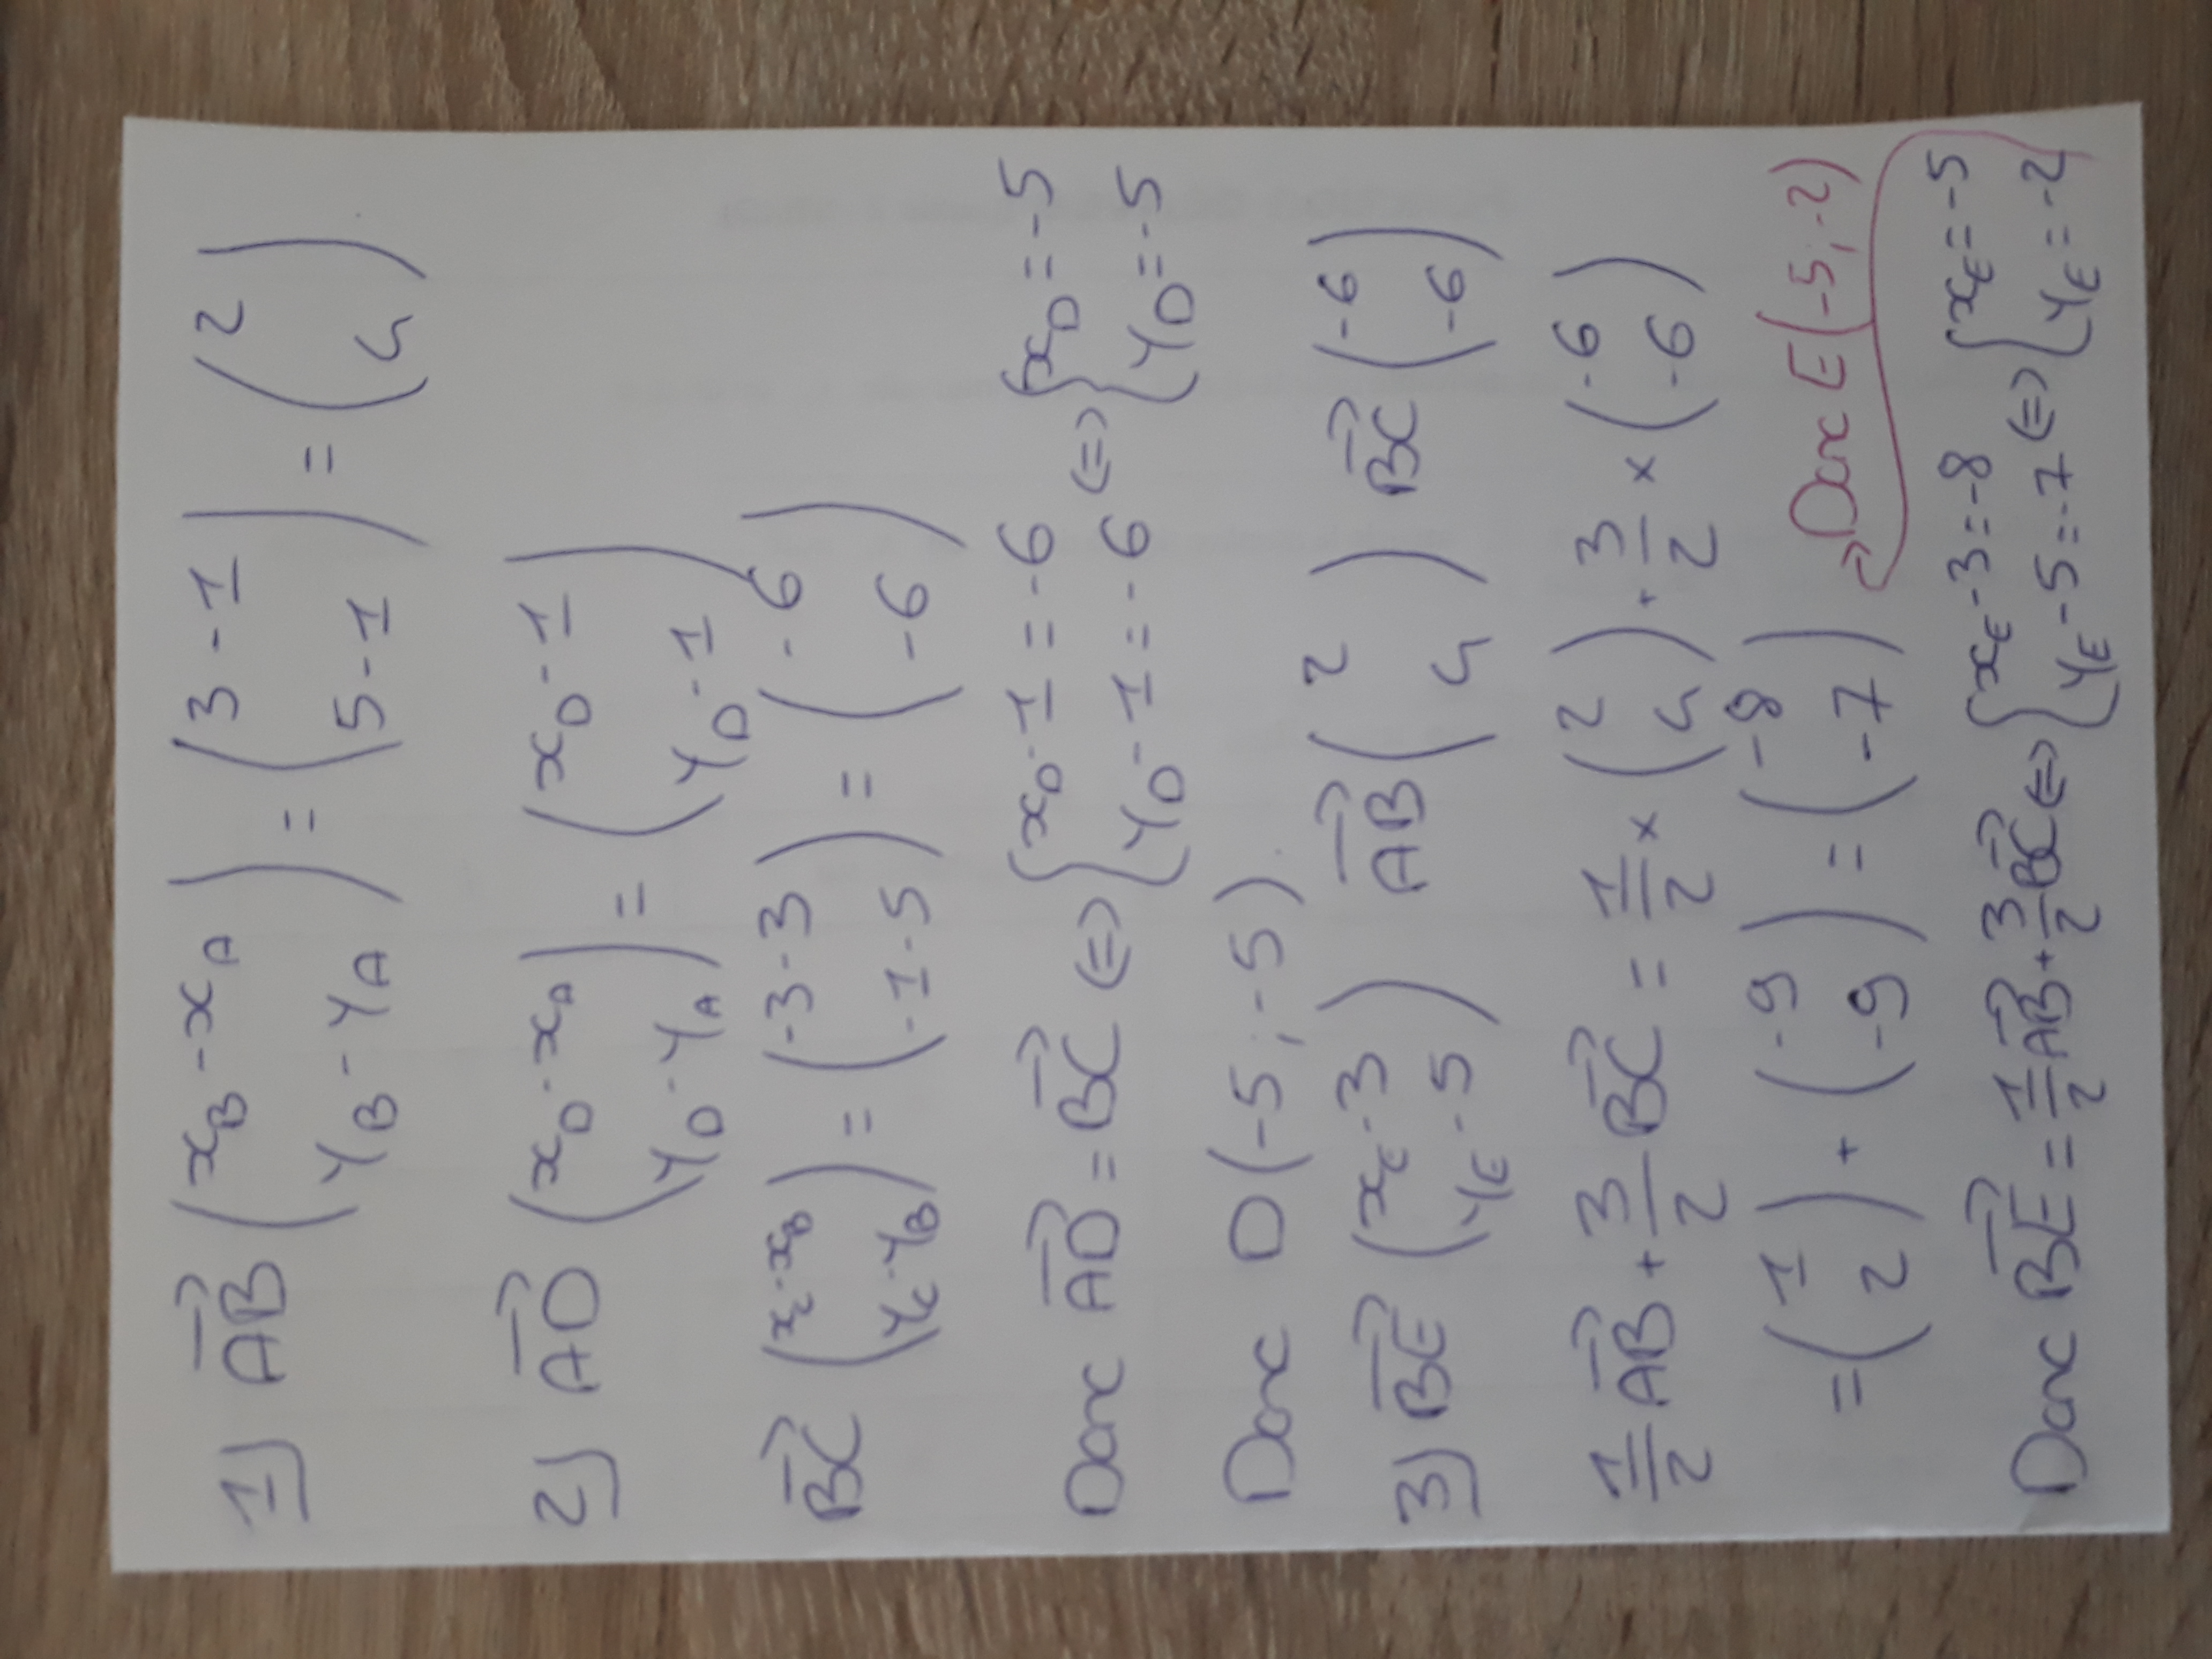 1) $\overrightarrow{AB} \begin{pmatrix} x_B - x_A \\ y_B - y_A \end{pmatrix} = \begin{pmatrix} 3 - 1 \\ 5 - 1 \end{pmatrix} = \begin{pmatrix} 2 \\ 4 \end{pmatrix}$.
2) $\overrightarrow{AD} \begin{pmatrix} x_D - x_A \\ y_D - y_A \end{pmatrix} = \begin{pmatrix} x_D - 1 \\ y_D - 1 \end{pmatrix}$
$\overrightarrow{BC} \begin{pmatrix} x_C - x_B \\ y_C - y_B \end{pmatrix} = \begin{pmatrix} -3 - 3 \\ -1 - 5 \end{pmatrix} = \begin{pmatrix} -6 \\ -6 \end{pmatrix}$
Donc $\overrightarrow{AD} = \overrightarrow{BC} \Leftrightarrow \begin{cases} x_D - 1 = -6 \\ y_D - 1 = -6 \end{cases} \Leftrightarrow \begin{cases} x_D = -5 \\ y_D = -5 \end{cases}$
Donc D(-5 ; -5).
3) $\overrightarrow{BE} \begin{pmatrix} x_E - 3 \\ y_E - 5 \end{pmatrix} \overrightarrow{AB} \begin{pmatrix} 2 \\ 4 \end{pmatrix} \overrightarrow{BC} \begin{pmatrix} -6 \\ -6 \end{pmatrix}$
$\frac{1}{2} \overrightarrow{AB} + \frac{3}{2} \overrightarrow{BC} = \frac{1}{2} \times \begin{pmatrix} 2 \\ 4 \end{pmatrix} + \frac{3}{2} \times \begin{pmatrix} -6 \\ -6 \end{pmatrix}$
$= \begin{pmatrix} 1 \\ 2 \end{pmatrix} + \begin{pmatrix} -9 \\ -9 \end{pmatrix} = \begin{pmatrix} -8 \\ -7 \end{pmatrix}$
Donc $\overrightarrow{BE} = \frac{1}{2} \overrightarrow{AB} + \frac{3}{2} \overrightarrow{BC} \Leftrightarrow \begin{cases} x_E - 3 = -8 \\ y_E - 5 = -7 \end{cases} \Leftrightarrow \begin{cases} x_E = -5 \\ y_E = -2 \end{cases}$
→ Donc E(-5 ; -2)